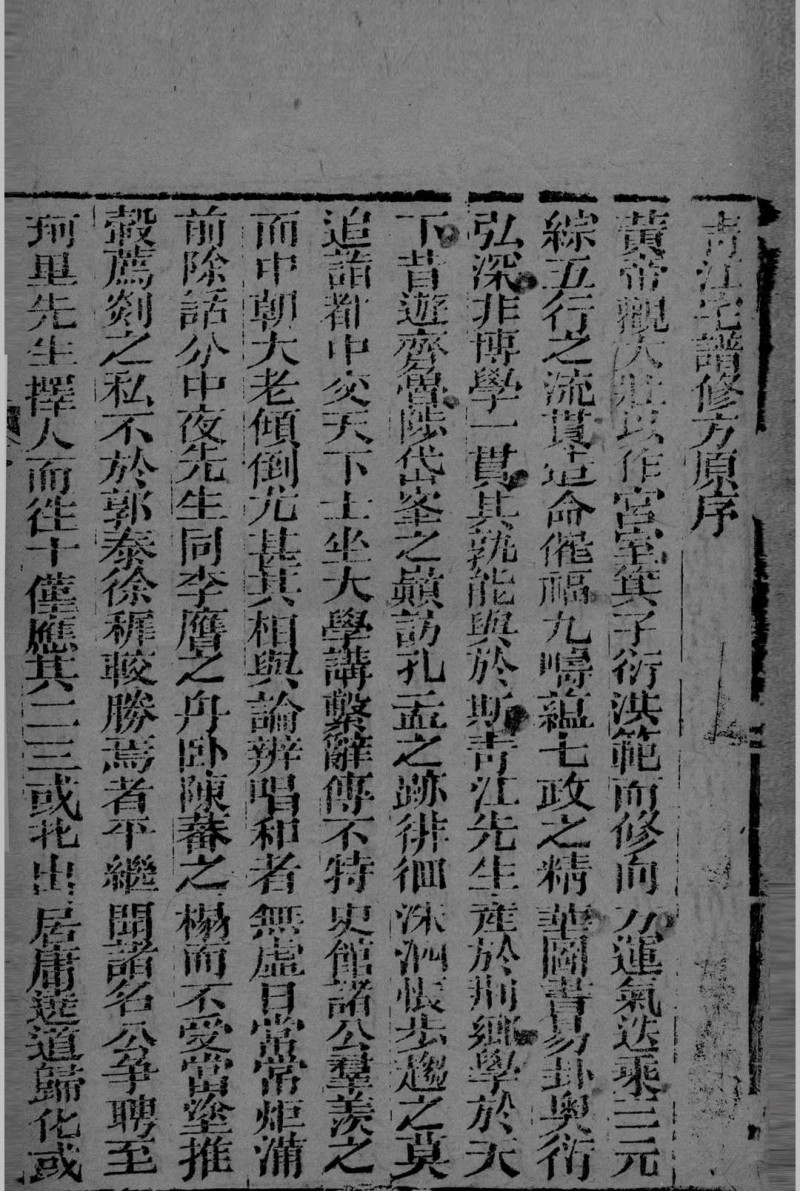 青江宅譜修方原序
黃帝觀大壯以作宮室箕子衍洪範而修向方運氣迭乘三元
綜五行之流貫造命催福九疇蘊七政之精華圖書易卦奥衍
弘深非博學一貫其孰能與於斯青江先生産於荆鄉學於天
下昔遊齊魯陟岱峯之巔訪孔孟之跡徘徊洙泗悵步趨之莫
追詣都中交天下士坐大學講繫辭傳不特史館諸公羣羨之
而中朝大老傾倒尤甚其相與論辨唱和者無虚日常常炬滿
前除話分中夜先生同李膺之舟卧陳蕃之榻而不受當塗推
轂薦剡之私不於郭泰徐穉較勝焉者乎繼聞諸名公争聘至
珂里先生擇人而往十僅應其二三或北出居庸遶道歸化或